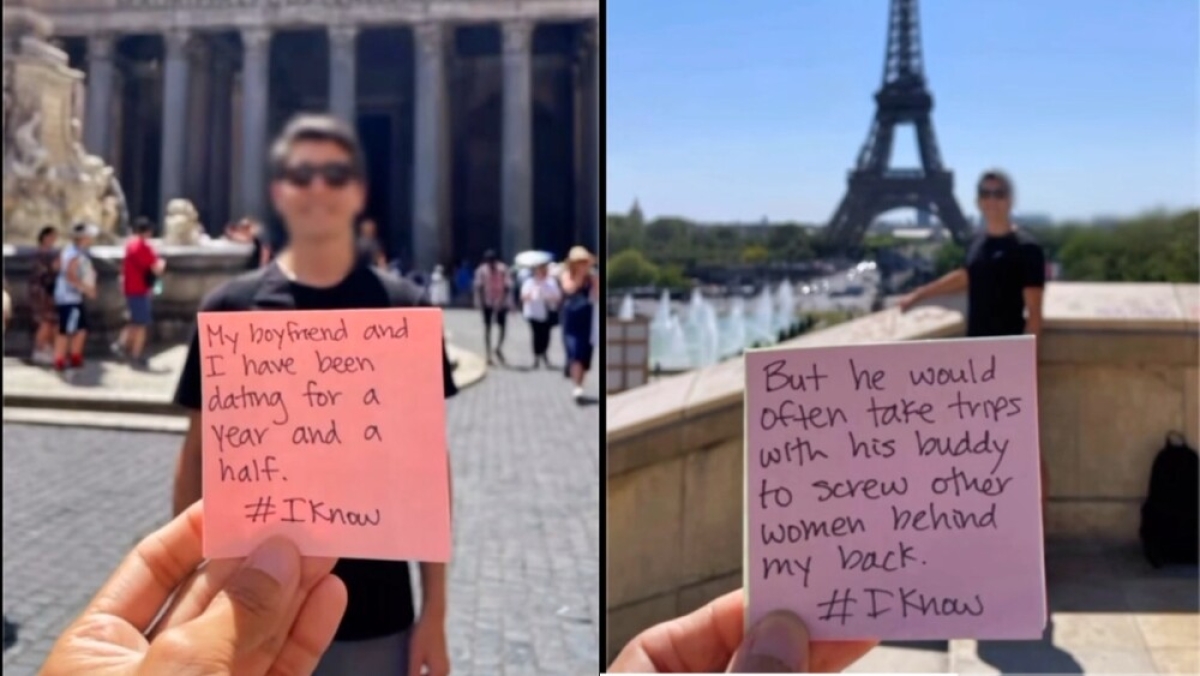 My boyfriend and
I have been
dating for a
year and a
half.
#IKnow
But he would
often take trips
with his buddy
to screw other
women behind
my back.
#IKnow